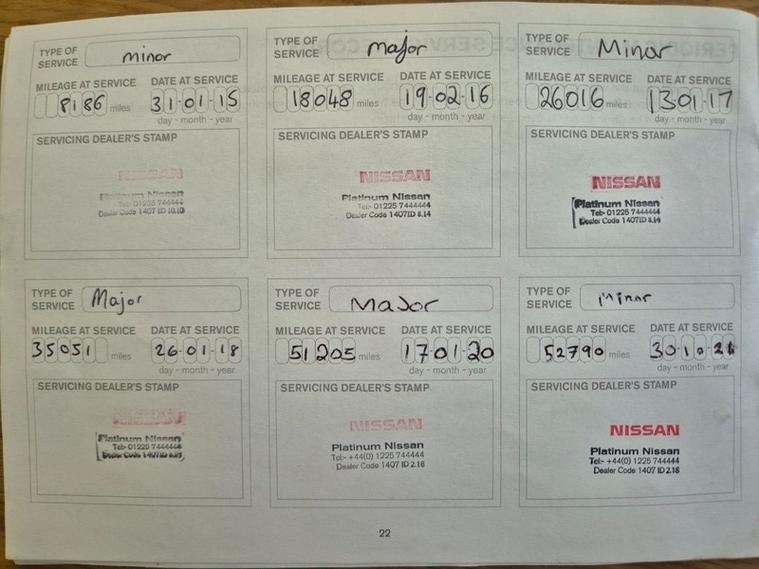 TYPE OF SERVICE minor
MILEAGE AT SERVICE DATE AT SERVICE
8186 miles 31-01-15
day - month - year
SERVICING DEALER'S STAMP
NISSAN
Platinum Nissan
Tel:- 01225 744444
Dealer Code 1407 ID 10.10
TYPE OF SERVICE Major
MILEAGE AT SERVICE DATE AT SERVICE
18048 miles 19-02-16
day - month - year
SERVICING DEALER'S STAMP
NISSAN
Platinum Nissan
Tel:- 01225 7444444
Dealer Code 1407ID 8.14
TYPE OF SERVICE Minor
MILEAGE AT SERVICE DATE AT SERVICE
26016 miles 1301-17
day - month - year
SERVICING DEALER'S STAMP
NISSAN
Platinum Nissan
Tel:- 01225 7444444
Dealer Code 1407ID 8.14
TYPE OF SERVICE Major
MILEAGE AT SERVICE DATE AT SERVICE
35051 miles 26-01-18
day - month - year
SERVICING DEALER'S STAMP
NISSAN
Platinum Nissan
Tel:- 01225 7444444
Dealer Code 1407ID
TYPE OF SERVICE Major
MILEAGE AT SERVICE DATE AT SERVICE
51205 miles 17-01-20
day - month - year
SERVICING DEALER'S STAMP
NISSAN
Platinum Nissan
Tel:- +44(0) 1225 744444
Dealer Code 1407 ID 2.18
TYPE OF SERVICE Minor
MILEAGE AT SERVICE DATE AT SERVICE
52790 miles 30-10-21
day - month - year
SERVICING DEALER'S STAMP
NISSAN
Platinum Nissan
Tel:- +44(0) 1225 744444
Dealer Code 1407 ID 2.18
22